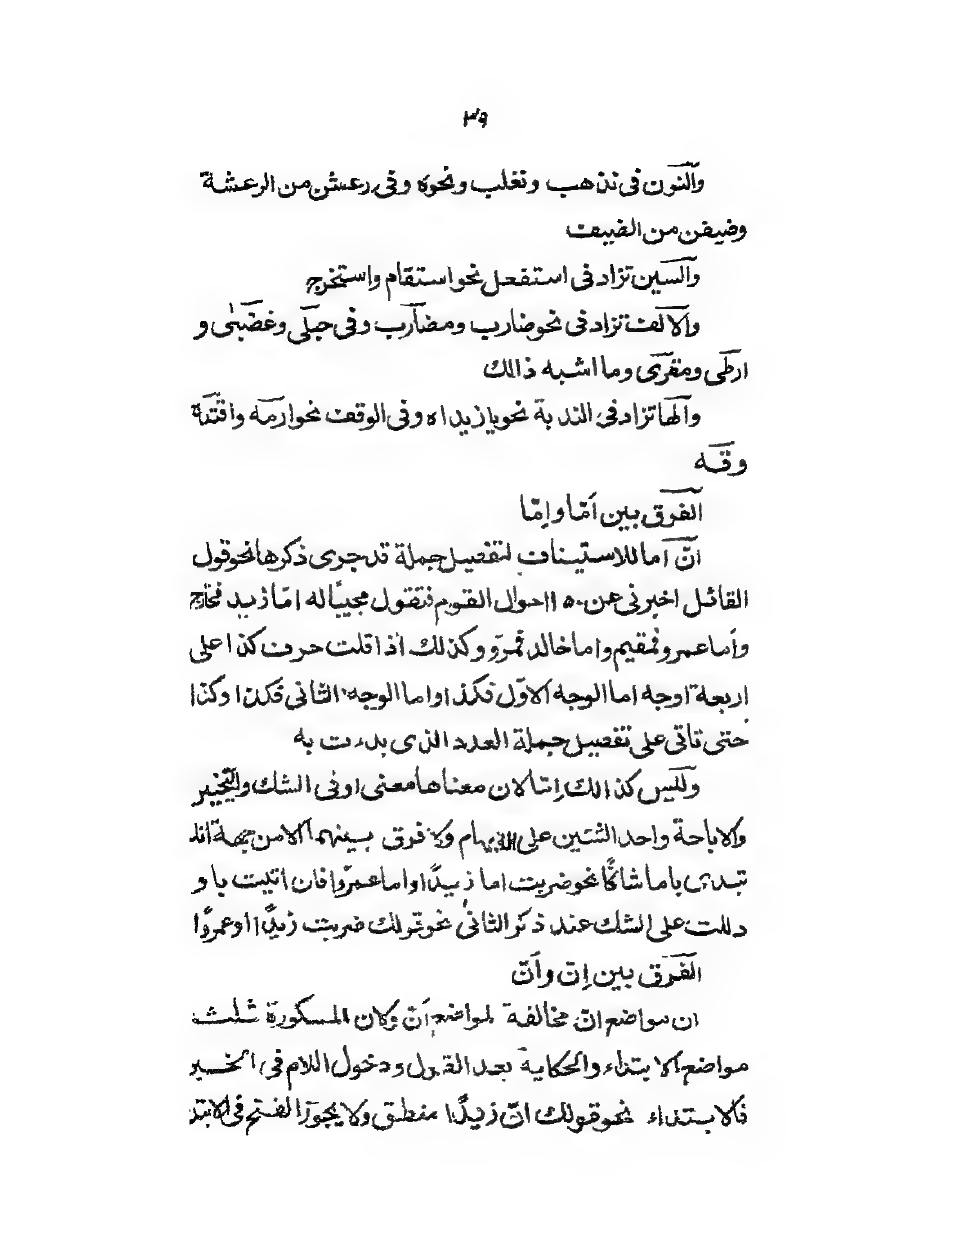 ٣٩
والنون فى نذهب ونغلب ونحوه وفى رعشن من الرعشة
وضيفن من الضيف
والسين تزاد فى استفعل نحو استقام واستخرج
والالف تزاد فى نحو ضارب ومضارب وفى حبلى وغضبى و
ارطى ومقرى وما اشبه ذالك
والها تزاد فى الندبة نحو يازيداه وفى الوقف نحو ارمه واقتده
وقه
الفرق بين أمّا وإمّا
انّ اما للاستيناف لتفصيل جملة قد جرى ذكرها نحو قول
القائل اخبرنى عن احوال القوم فتقول مجيبًا له امّا زيد فخارج
وأما عمرو فمقيم واما خالد وكذلك اذا قلت حرف كذا على
اربعة اوجه اما الوجه الاوّل فكذا واما الوجه الثانى فكذا وكذا
حتى تاتى على تفصيل جملة العدد الذى بدءت به
وليس كذالك إمّا لان معناها معنى او فى الشك والتخيير
والاباحة واحد الشئين على الابهام ولا فرق بينهما الا من جهة انك
تبدى باما شاكًّا نحو ضربت اما زيدًا واما عمروا فان اتيت باو
دللت على الشك عند ذكر الثانى نحو قولك ضربت زيدًا او عمروًا
الفرق بين إنّ وأنّ
ان مواضع انّ مخالفة لمواضع أنّ وكان المسكورة ثلث
مواضع الابتداء والحكاية بعد القول ودخول اللام فى الخبر
فالابتداء نحو قولك انّ زيدًا منطق ولا يجوز الفتح فى الابتد